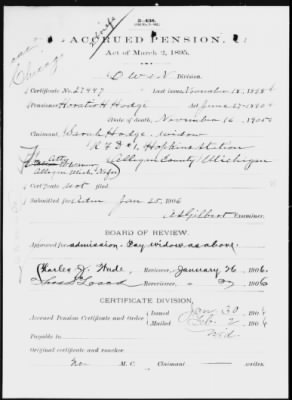 3-438.
ACCRUED PENSION.
Act of March 2, 1895.
Chicago
Owen Division.
Certificate No. 27447 Last issue, November 18, 1898
Pensioner, Horatio H. Hodge Act June 27-1890
Date of death, November 16, 1905
Claimant, Sarah Hodge, widow
RFD #1, Hopkins Station
Allegan County Michigan
Atty
Allegan Mich.
Certificate not filed.
Submitted for Jan 25, 1906
Gilbert Examiner.
BOARD OF REVIEW.
Approved for admission. Pay widow as above.
Charles J. Wade, Reviewer, January 26, 1906.
Rereviewer, " 27, 1906
CERTIFICATE DIVISION.
Accrued Pension Certificate and Order Issued Jan 30, 1906
Mailed Feb. 2, 1906
Payable to Wid.
Original certificate and voucher
No M. C. Claimant writes.